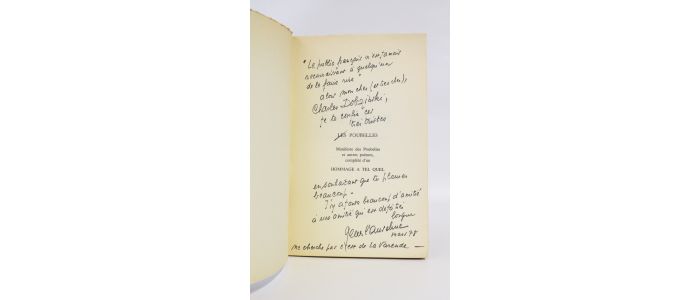 "Le public français n'est jamais
reconnaissant à quelqu'un
de le faire rire"
alors mon cher (et les chers),
Charles Dobzynski,
je te confie ces
très tristes
LES POUBELLES
Manifeste des Poubelles
et autres poèmes,
complété d'un
HOMMAGE A TEL QUEL
en souhaitant que tu pleures
beaucoup.
J'y ajoute beaucoup d'amitié
à une amitié qui est déjà très
longue
Jean L'Anselme
mars 78
ne cherche pas c'est de La Varende